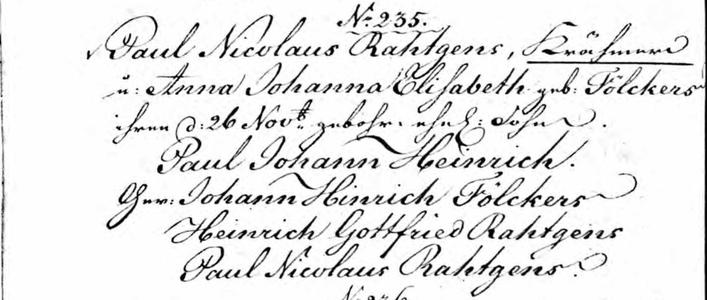 No. 235.
Paul Nicolaus Rahtgens, Krähmer
u: Anna Johanna Elisabeth geb: Fölckers
ihren d: 26 Novb. gebohr. ehel: Sohn.
Paul Johann Heinrich.
Gev: Johann Hinrich Fölckers
Heinrich Gottfried Rahtgens
Paul Nicolaus Rahtgens.
No 236